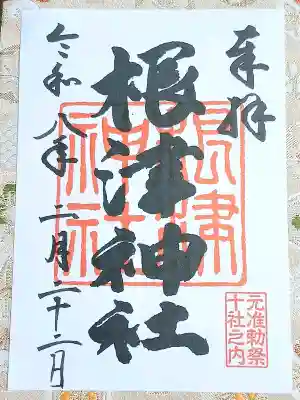 奉拝
根津神社
根津神社
令和八年二月二十二日
元准勅祭
十社之内